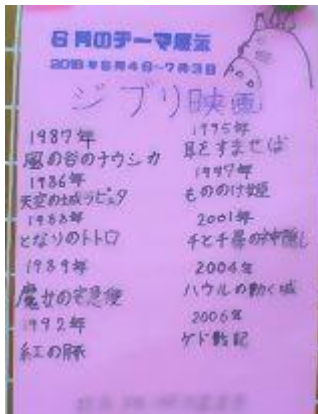 6月のテーマ展示
2018年6月4日~7月3日
ジブリ映画
1987年
風の谷のナウシカ
1986年
天空の城ラピュタ
1988年
となりのトトロ
1989年
魔女の宅急便
1992年
紅の豚
1995年
耳をすませば
1997年
もののけ姫
2001年
千と千尋の神隠し
2004年
ハウルの動く城
2006年
ゲド戦記